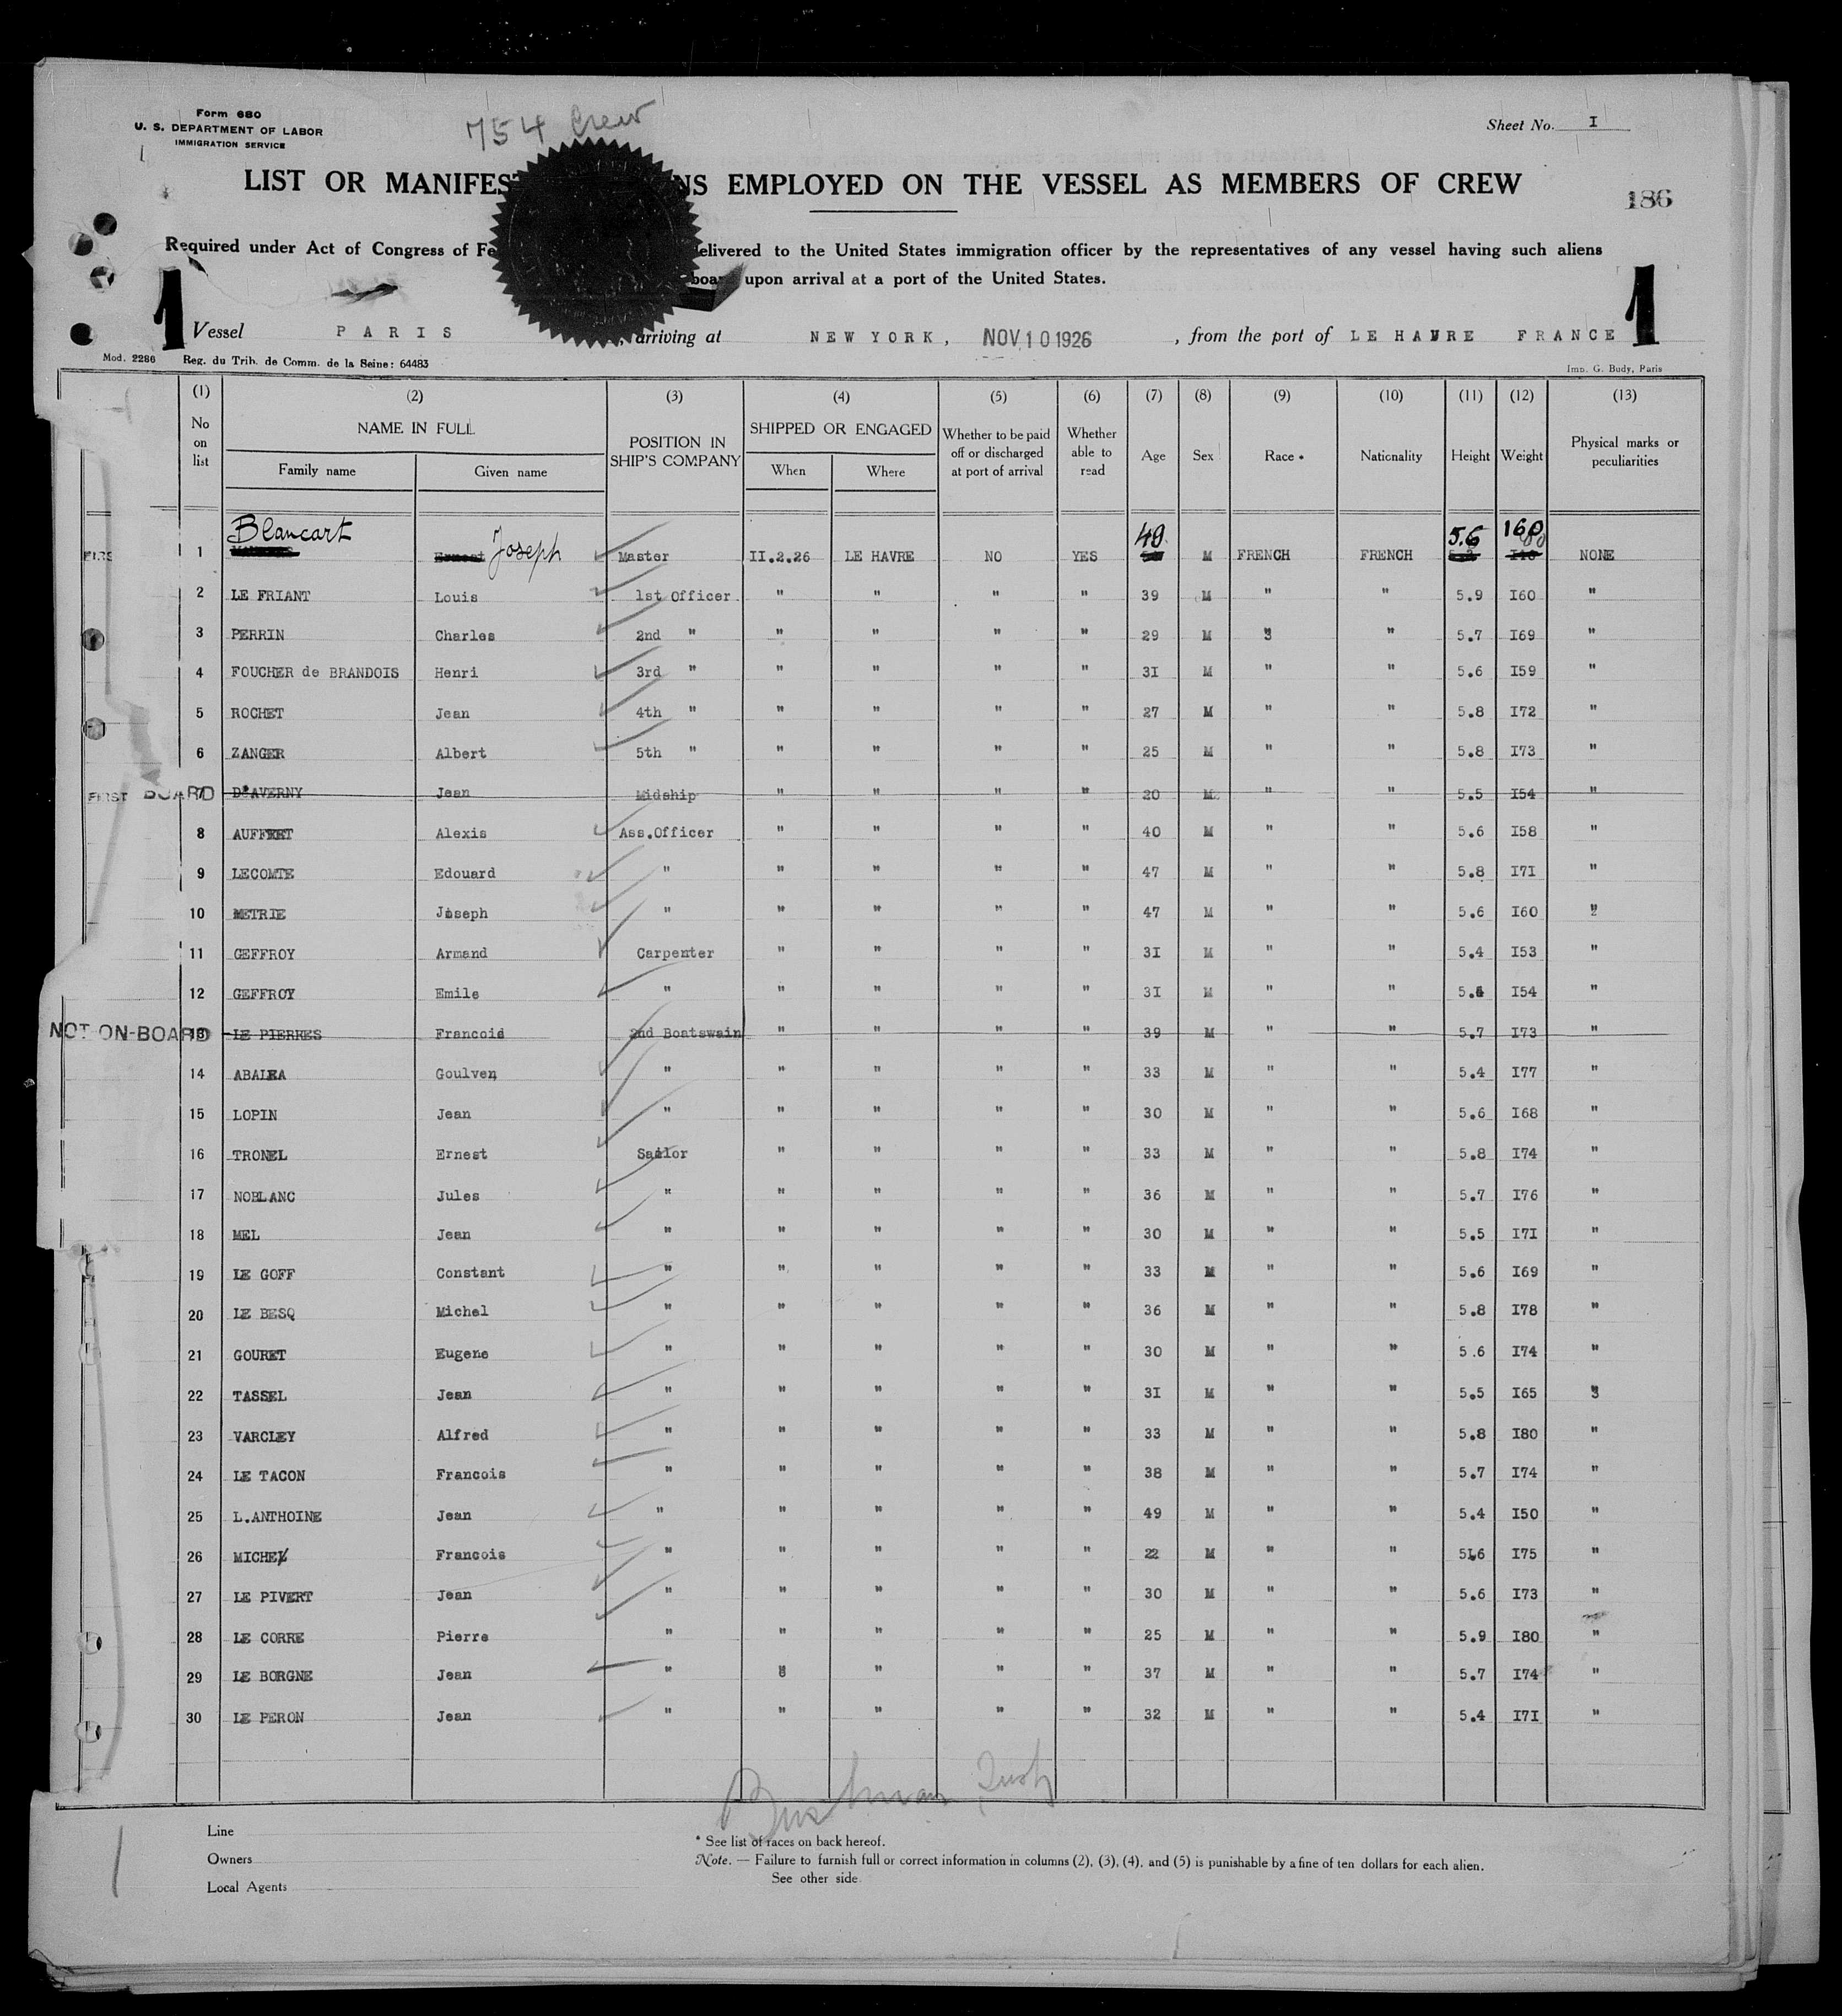 Form 680
U. S. DEPARTMENT OF LABOR
IMMIGRATION SERVICE
754 Crew
Sheet No. I
LIST OR MANIFES NS EMPLOYED ON THE VESSEL AS MEMBERS OF CREW
186
Required under Act of Congress of Fe elivered to the United States immigration officer by the representatives of any vessel having such aliens
board upon arrival at a port of the United States.
1 Vessel PARIS , arriving at NEW YORK, NOV 10 1926 , from the port of LE HAVRE FRANCE 1
Mod. 2286 Reg. du Trib. de Comm. de la Seine: 64483
Imp. G. Budy, Paris
(1) (2) (3) (4) (5) (6) (7) (8) (9) (10) (11) (12) (13)
No on list NAME IN FULL Family name Given name POSITION IN SHIP'S COMPANY SHIPPED OR ENGAGED When Where Whether to be paid off or discharged at port of arrival Whether able to read Age Sex Race * Nationality Height Weight Physical marks or peculiarities
1 Blancart Ernest Joseph Master II.2.26 LE HAVRE NO YES 49 M FRENCH FRENCH 5.6 160 NONE
2 LE FRIANT Louis 1st Officer " " " " 39 M " " 5.9 I60 "
3 PERRIN Charles 2nd " " " " " 29 M " " 5.7 I69 "
4 FOUCHER de BRANDOIS Henri 3rd " " " " " 3I M " " 5.6 I59 "
5 ROCHET Jean 4th " " " " " 27 M " " 5.8 I72 "
6 ZANGER Albert 5th " " " " " 25 M " " 5.8 I73 "
FIRST BOARD 7 D'AVERNY Jean Midship " " " " 20 M " " 5.5 I54 "
8 AUFFRET Alexis Ass.Officer " " " " 40 M " " 5.6 I58 "
9 LECOMTE Edouard " " " " " 47 M " " 5.8 I7I "
10 METRIE Joseph " " " " " 47 M " " 5.6 I60 "
11 GEFFROY Armand Carpenter " " " " 3I M " " 5.4 I53 "
12 GEFFROY Emile " " " " " 3I M " " 5.4 I54 "
NOT ON-BOARD 13 LE PIERRES Francois 2nd Boatswain " " " " 39 M " " 5.7 I73 "
14 ABALEA Goulven " " " " " 33 M " " 5.4 I77 "
15 LOPIN Jean " " " " " 30 M " " 5.6 I68 "
16 TRONEL Ernest Sailor " " " " 33 M " " 5.8 I74 "
17 NOBLANC Jules " " " " " 36 M " " 5.7 I76 "
18 MEL Jean " " " " " 30 M " " 5.5 I7I "
19 LE GOFF Constant " " " " " 33 M " " 5.6 I69 "
20 LE BESQ Michel " " " " " 36 M " " 5.8 I78 "
21 GOURET Eugene " " " " " 30 M " " 5.6 I74 "
22 TASSEL Jean " " " " " 3I M " " 5.5 I65 "
23 VARCLEY Alfred " " " " " 33 M " " 5.8 I80 "
24 LE TACON Francois " " " " " 38 M " " 5.7 I74 "
25 L.ANTHOINE Jean " " " " " 49 M " " 5.4 I50 "
26 MICHEL Francois " " " " " 22 M " " 5.6 I75 "
27 LE PIVERT Jean " " " " " 30 M " " 5.6 I73 "
28 LE CORRE Pierre " " " " " 25 M " " 5.9 I80 "
29 LE BORGNE Jean " " " " " 37 M " " 5.7 I74 "
30 LE PERON Jean " " " " " 32 M " " 5.4 I7I "
Line
Owners
Local Agents
* See list of races on back hereof.
Note. — Failure to furnish full or correct information in columns (2), (3), (4), and (5) is punishable by a fine of ten dollars for each alien.
See other side.